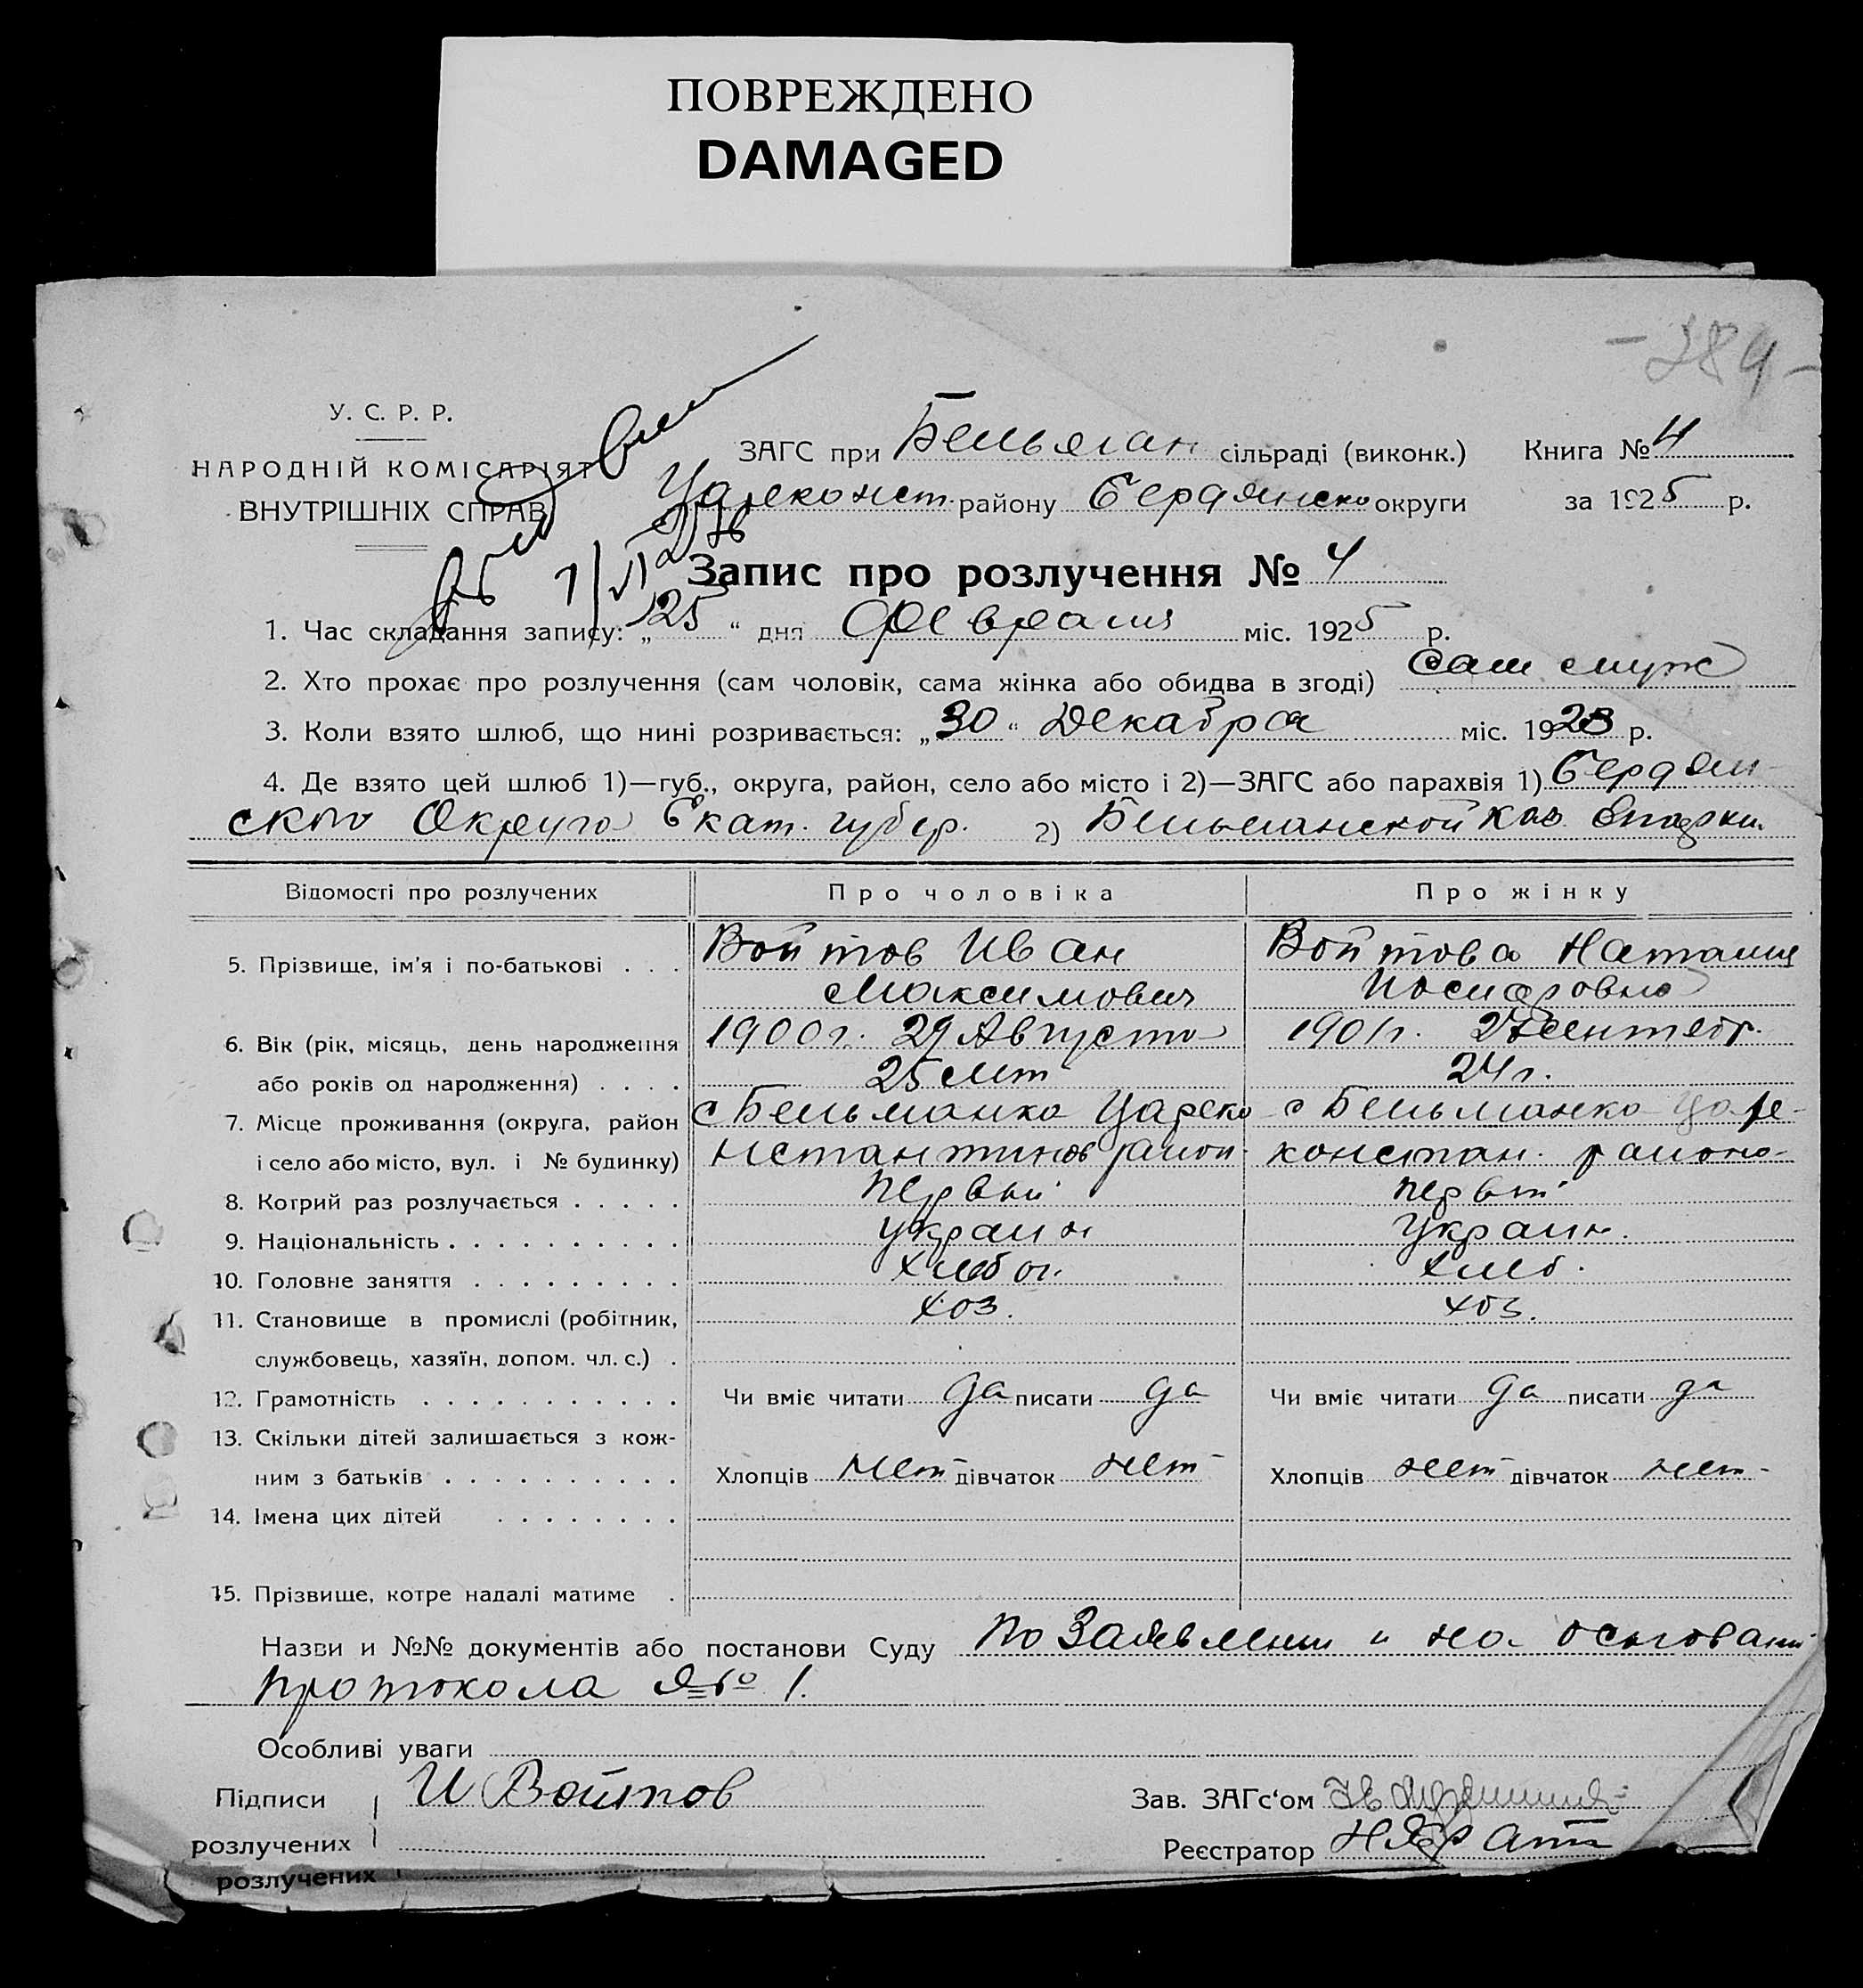 ПОВРЕЖДЕНО
DAMAGED
-389-
У. С. Р. Р.
НАРОДНІЙ КОМІСАРІЯТ
ВНУТРІШНІХ СПРАВ
ЗАГС при Бельман сільраді (виконк.) Книга № 4
Цареконст. району Бердянско округи за 1925 р.
Запис про розлучення № 4
1. Час складання запису: „25“ дня Февраля міс. 1925 р.
2. Хто прохає про розлучення (сам чоловік, сама жінка або обидва в згоді) Сам муж
3. Коли взято шлюб, що нині розривається: „30“ Декабра міс. 1923 р.
4. Де взято цей шлюб 1)—губ., округа, район, село або місто і 2)—ЗАГС або парахвія 1) Бердян-
ского Округа Екат. губер. 2) Бельманской
Відомості про розлучених Про чоловіка Про жінку
5. Прізвище, ім'я і по-батькові . . . Войтов Иван Войтова Наталия
Максимович Иосифовна
6. Вік (рік, місяць, день народження 1900 г. 29 Августа 1901 г. сентебр.
або років од народження) . . . . 25 лет 24 г.
7. Місце проживання (округа, район с Бельманка Цареко с Бельманка Царе-
і село або місто, вул. і № будинку) нстантинов район. констан. района
8. Котрий раз розлучається . . . . . Первый первый
9. Національність . . . . . . . . . . украин Украин.
10. Головне заняття . . . . . . . . . хлебоп. хлеб.
11. Становище в промислі (робітник, хоз. хоз.
службовець, хазяїн, допом. чл. с.) .
12. Грамотність . . . . . . . . . . . Чи вміє читати да писати да Чи вміє читати да писати да
13. Скільки дітей залишається з кож-
ним з батьків . . . . . . . . . . Хлопців нет дівчаток нет Хлопців нет дівчаток нет
14. Імена цих дітей . . . . . . . .
15. Прізвище, котре надалі матиме .
Назви и №№ документів або постанови Суду По Заявлении и на основании
протокола № 1.
Особливі уваги
Підписи И Войтов Зав. ЗАГс'ом
розлучених Реєстратор
розлучених